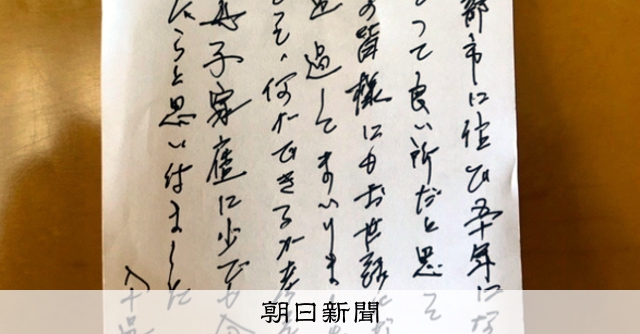 都市に住て五十年にな
って良い所だと思
皆様にもお世話
過してまいりま
何ができるか考
母子家庭に少でも
らと思い付ました
八十
朝日新聞